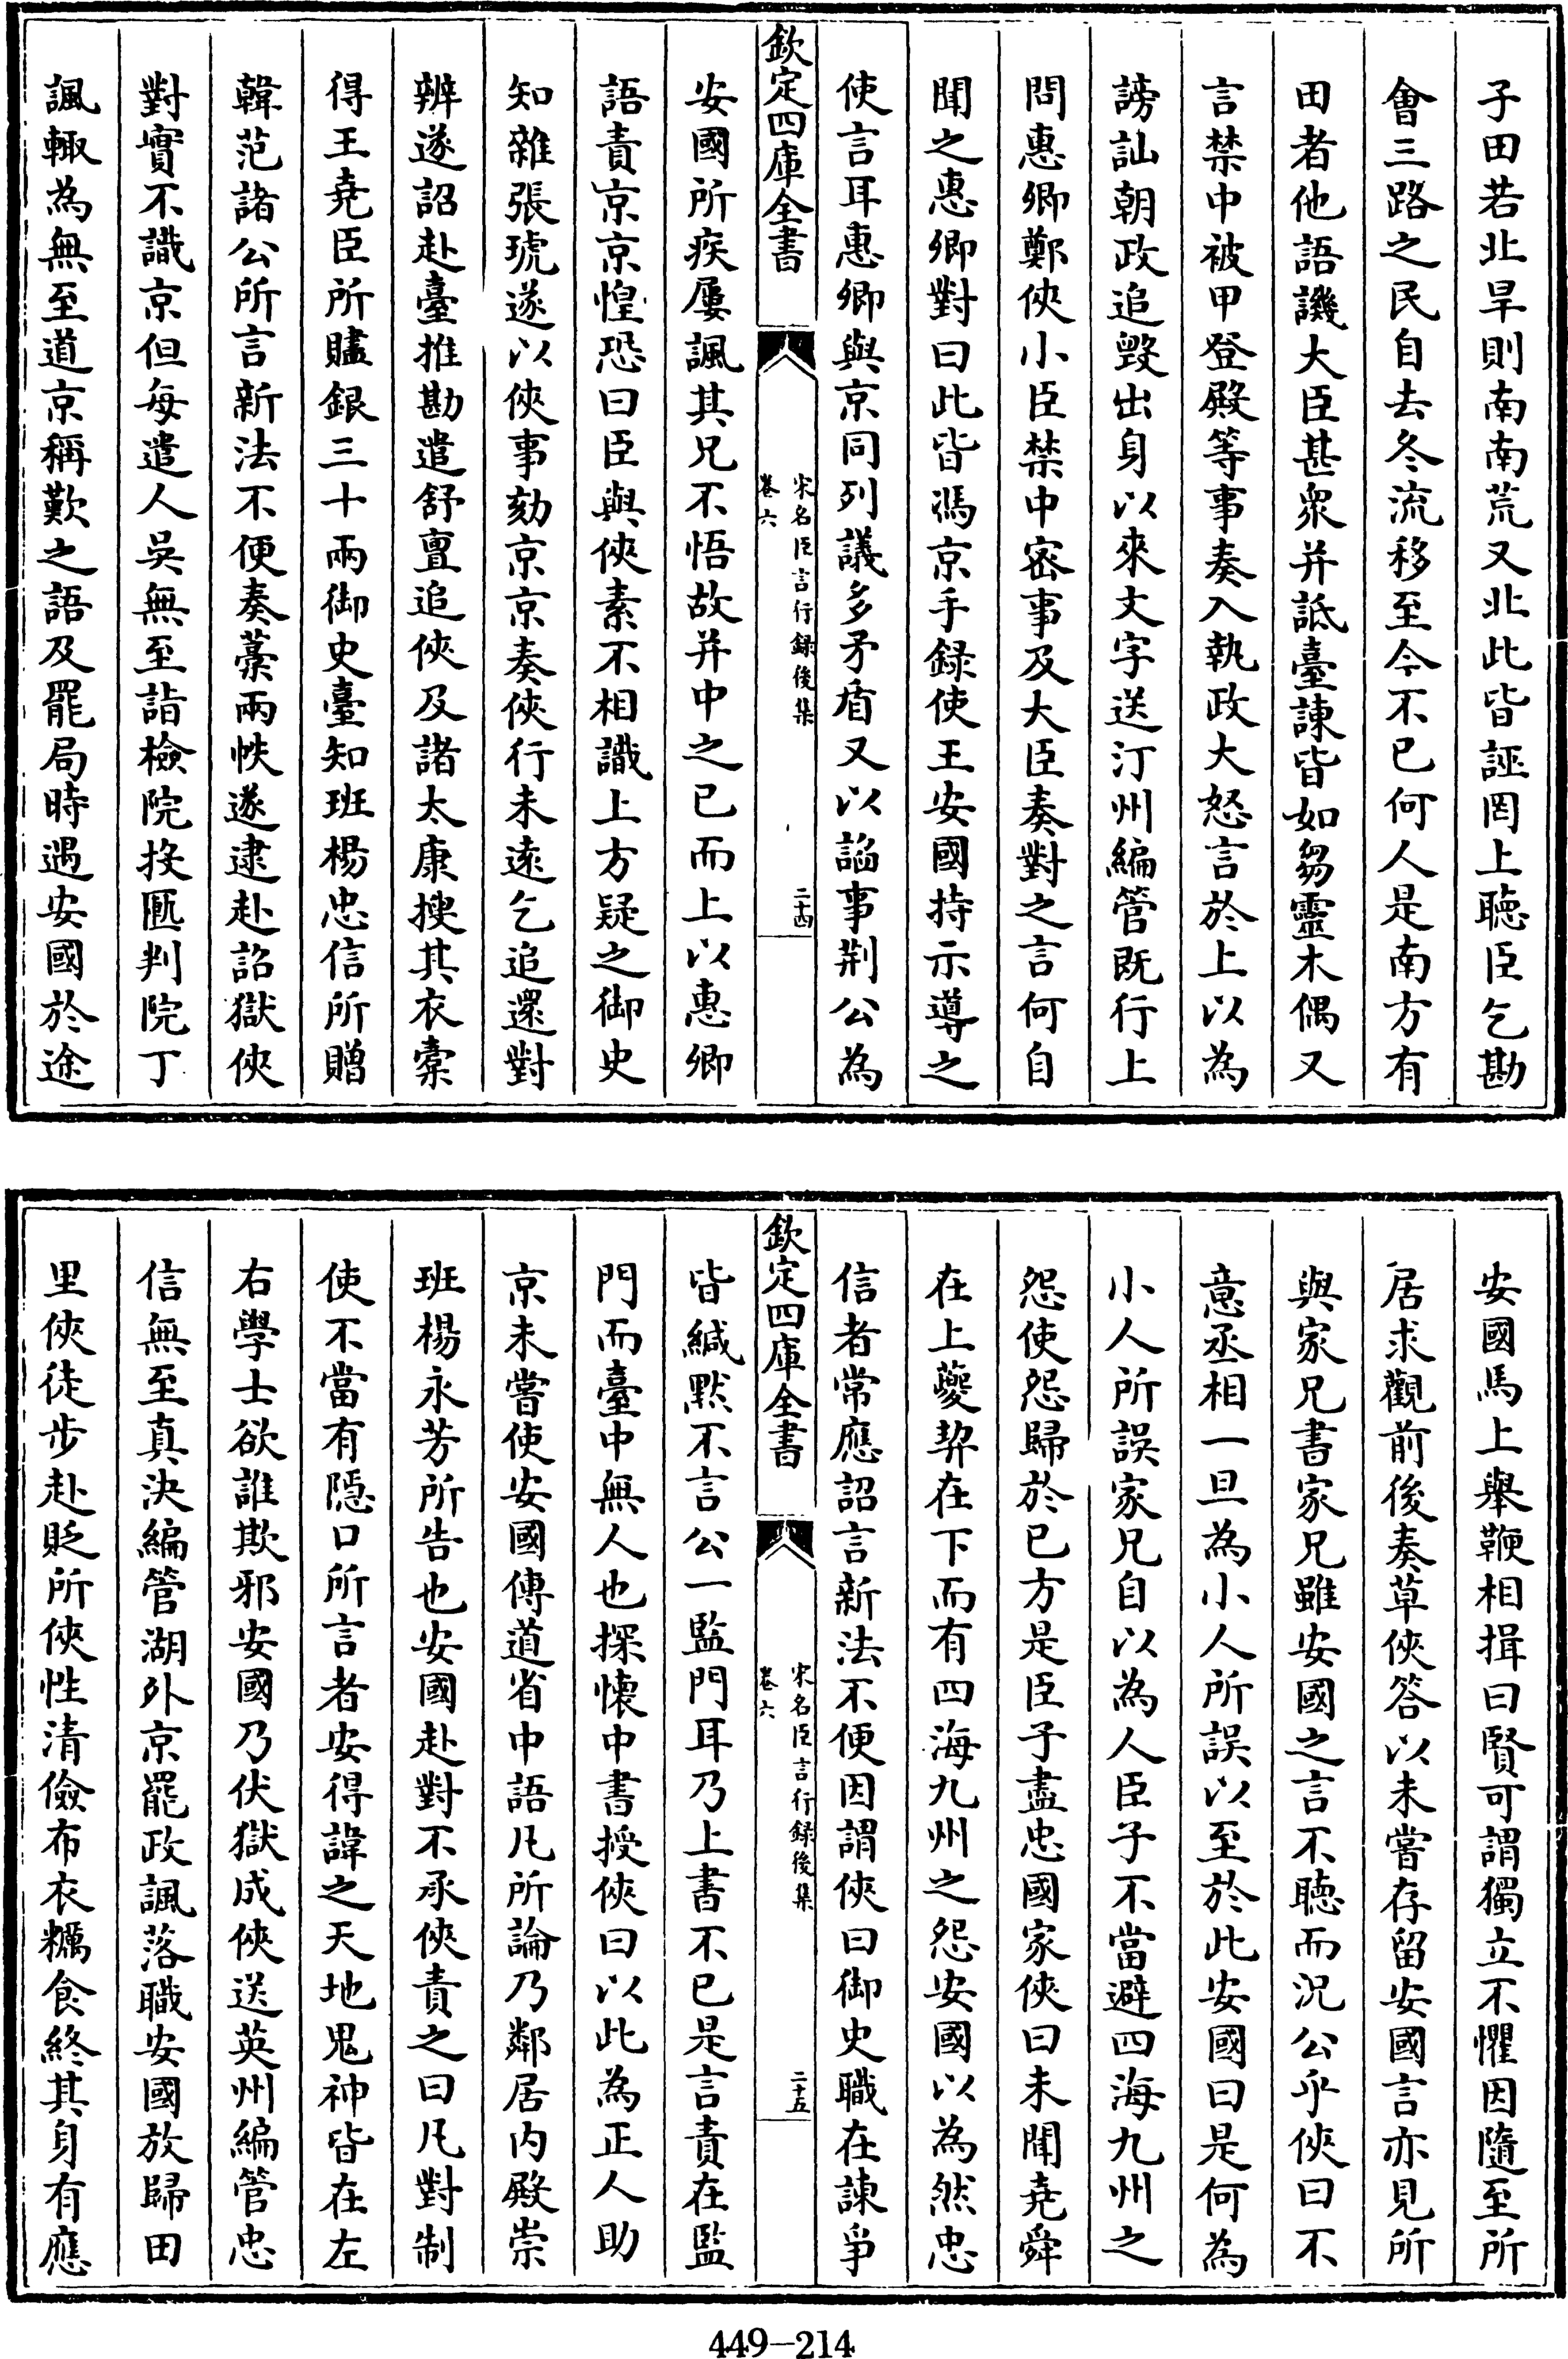 子田若北旱則南南荒又北此皆誣罔上聽臣乞勘
會三路之民自去冬流移至今不已何人是南方有
田者他語譏大臣甚衆并詆臺諫皆如芻靈木偶又
言禁中被甲登殿等事奏入執政大怒言於上以為
謗訕朝政追毀出身以來文字送汀州編管既行上
問惠卿鄭俠小臣禁中密事及大臣奏對之言何自
聞之惠卿對曰此皆馮京手録使王安國持示導之
使言耳惠卿與京同列議多矛盾又以諂事荆公為
欽定四庫全書
宋名臣言行録後集
卷六
二十四
安國所疾屢諷其兄不悟故并中之已而上以惠卿
語責京京惶恐曰臣與俠素不相識上方疑之御史
知雜張琥遂以俠事劾京京奏俠行未遠乞追還對
辨遂詔赴臺推勘遣舒亶追俠及諸太康搜其衣橐
得王堯臣所贐銀三十兩御史臺知班楊忠信所贈
韓范諸公所言新法不便奏藁兩帙遂逮赴詔獄俠
對實不識京但每遣人吳無至詣檢院投匭判院丁
諷輒為無至道京稱歎之語及罷局時遇安國於途
安國馬上舉鞭相揖曰賢可謂獨立不懼因隨至所
居求觀前後奏草俠答以未嘗存留安國言亦見所
與家兄書家兄雖安國之言不聽而況公乎俠曰不
意丞相一旦為小人所誤以至於此安國曰是何為
小人所誤家兄自以為人臣子不當避四海九州之
怨使怨歸於已方是臣子盡忠國家俠曰未聞堯舜
在上夔契在下而有四海九州之怨安國以為然忠
信者常應詔言新法不便因謂俠曰御史職在諫爭
欽定四庫全書
宋名臣言行録後集
卷六
二十五
皆緘默不言公一監門耳乃上書不已是言責在監
門而臺中無人也探懷中書授俠曰以此為正人助
京未嘗使安國傳道省中語凡所論乃鄰居内殿崇
班楊永芳所告也安國赴對不承俠責之曰凡對制
使不當有隠口所言者安得諱之天地鬼神皆在左
右學士欲誰欺邪安國乃伏獄成俠送英州編管忠
信無至真決編管湖外京罷政諷落職安國放歸田
里俠徒步赴貶所俠性清儉布衣糲食終其身有應
449-214